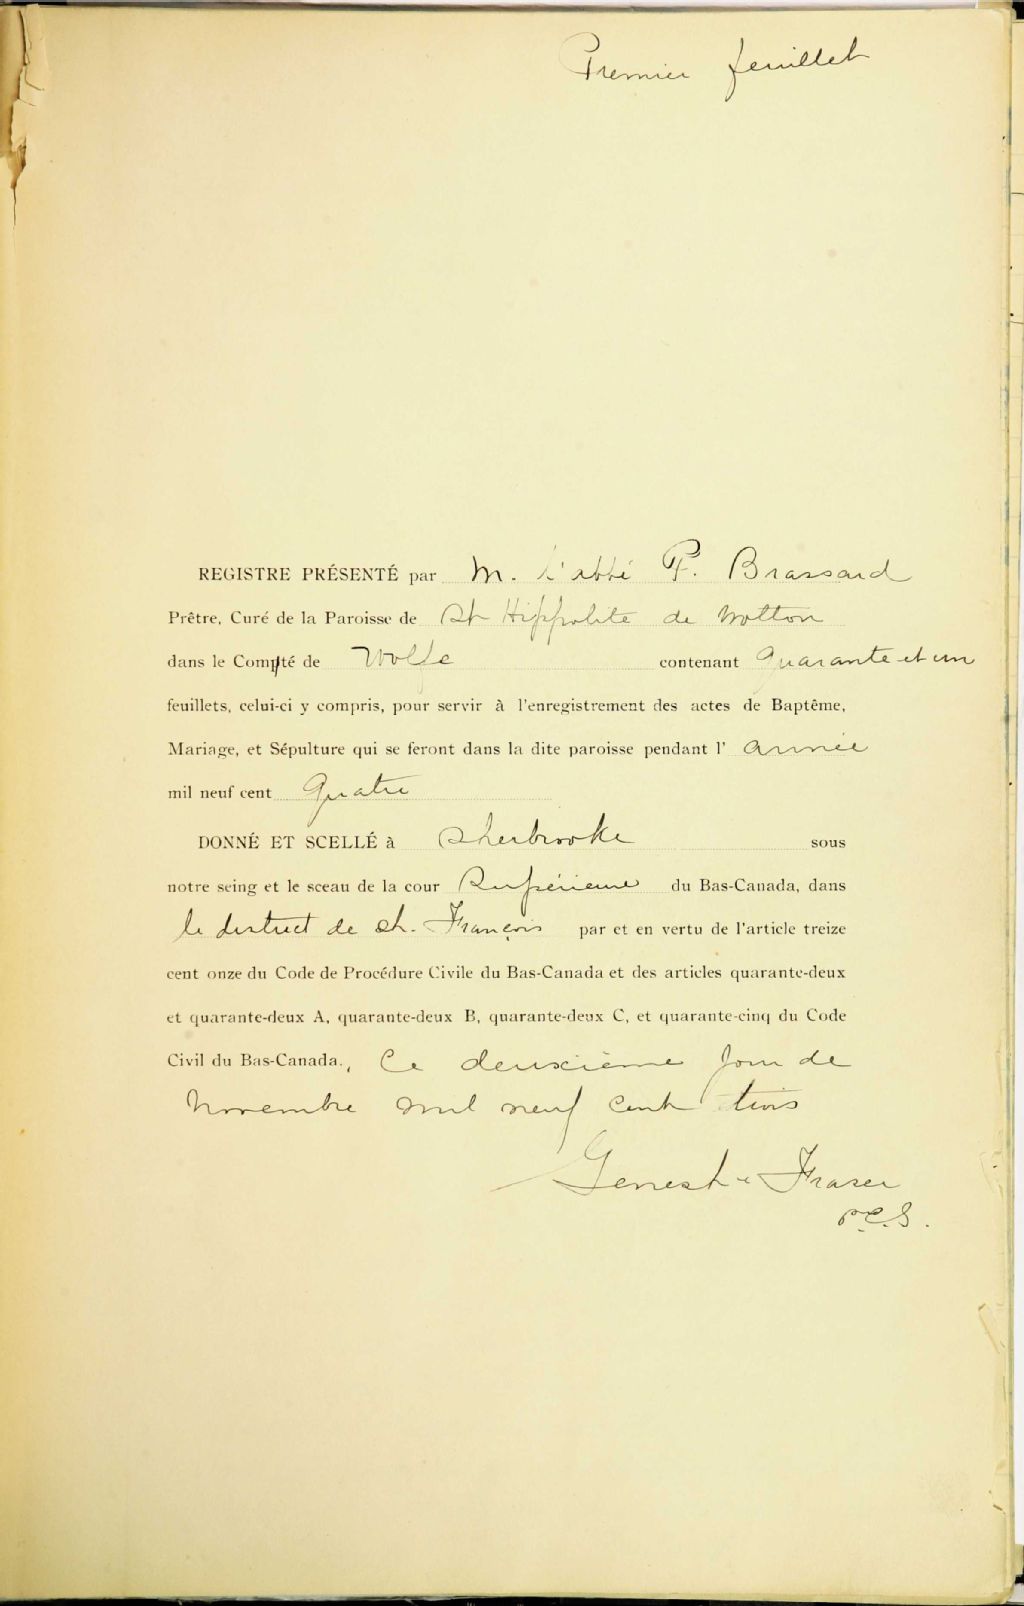 Premier feuillet
REGISTRE PRÉSENTÉ par M. l'abbé F. Brassard
Prêtre, Curé de la Paroisse de St Hippolite de Wotton
dans le Compté de Wolfe contenant Quarante et un
feuillets, celui-ci y compris, pour servir à l'enregistrement des actes de Baptême,
Mariage, et Sépulture qui se feront dans la dite paroisse pendant l' année
mil neuf cent Quatre
DONNÉ ET SCELLÉ à Sherbrooke sous
notre seing et le sceau de la cour Supérieure du Bas-Canada, dans
le district de St. François par et en vertu de l'article treize
cent onze du Code de Procédure Civile du Bas-Canada et des articles quarante-deux
et quarante-deux A, quarante-deux B, quarante-deux C, et quarante-cinq du Code
Civil du Bas-Canada., Ce deuxième jour de
Novembre mil neuf cent trois
Genest & Fraser
P.C.S.